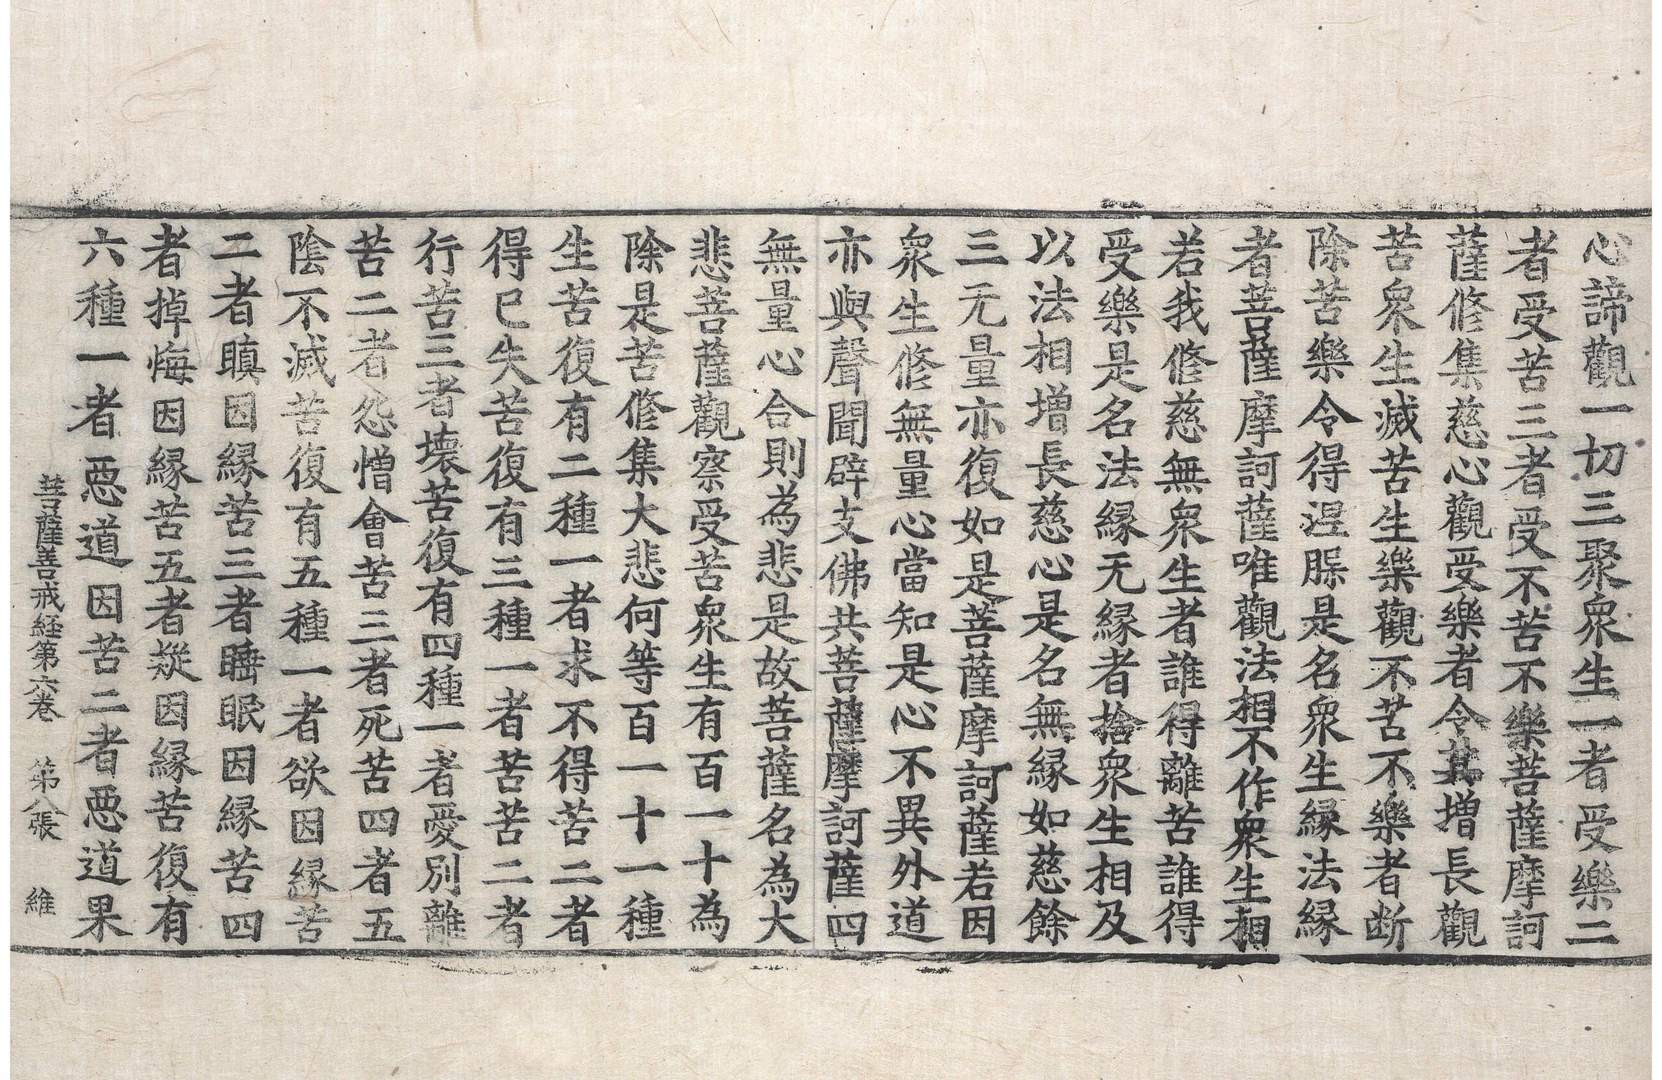 心諦觀一切三聚衆生一者受樂二
者受苦三者受不苦不樂菩薩摩訶
薩修集慈心觀受樂者令其增長觀
苦衆生滅苦生樂觀不苦不樂者断
除苦樂令得涅脲是名衆生緣法緣
者菩薩摩訶薩唯觀法相不作衆生相
若我修慈無衆生者誰得離苦誰得
受樂是名法緣无緣者捨衆生相及
以法相增長慈心是名無緣如慈餘
三无量亦復如是菩薩摩訶薩若因
衆生修無量心當知是心不異外道
亦與聲聞辟支佛共菩薩摩訶薩四
無量心合則為悲是故菩薩名為大
悲菩薩觀察受苦衆生有百一十為
除是苦修集大悲何等百一十一種
生苦復有二種一者求不得苦二者
得已失苦復有三種一者苦苦二者
行苦三者壞苦復有四種一者愛別離
苦二者怨憎會苦三者死苦四者五
陰不滅苦復有五種一者欲因緣苦
二者瞋因緣苦三者睡眠因緣苦四
者掉悔因緣苦五者疑因緣苦復有
六種一者惡道因苦二者惡道果
菩薩善戒経第六卷 第八張 維